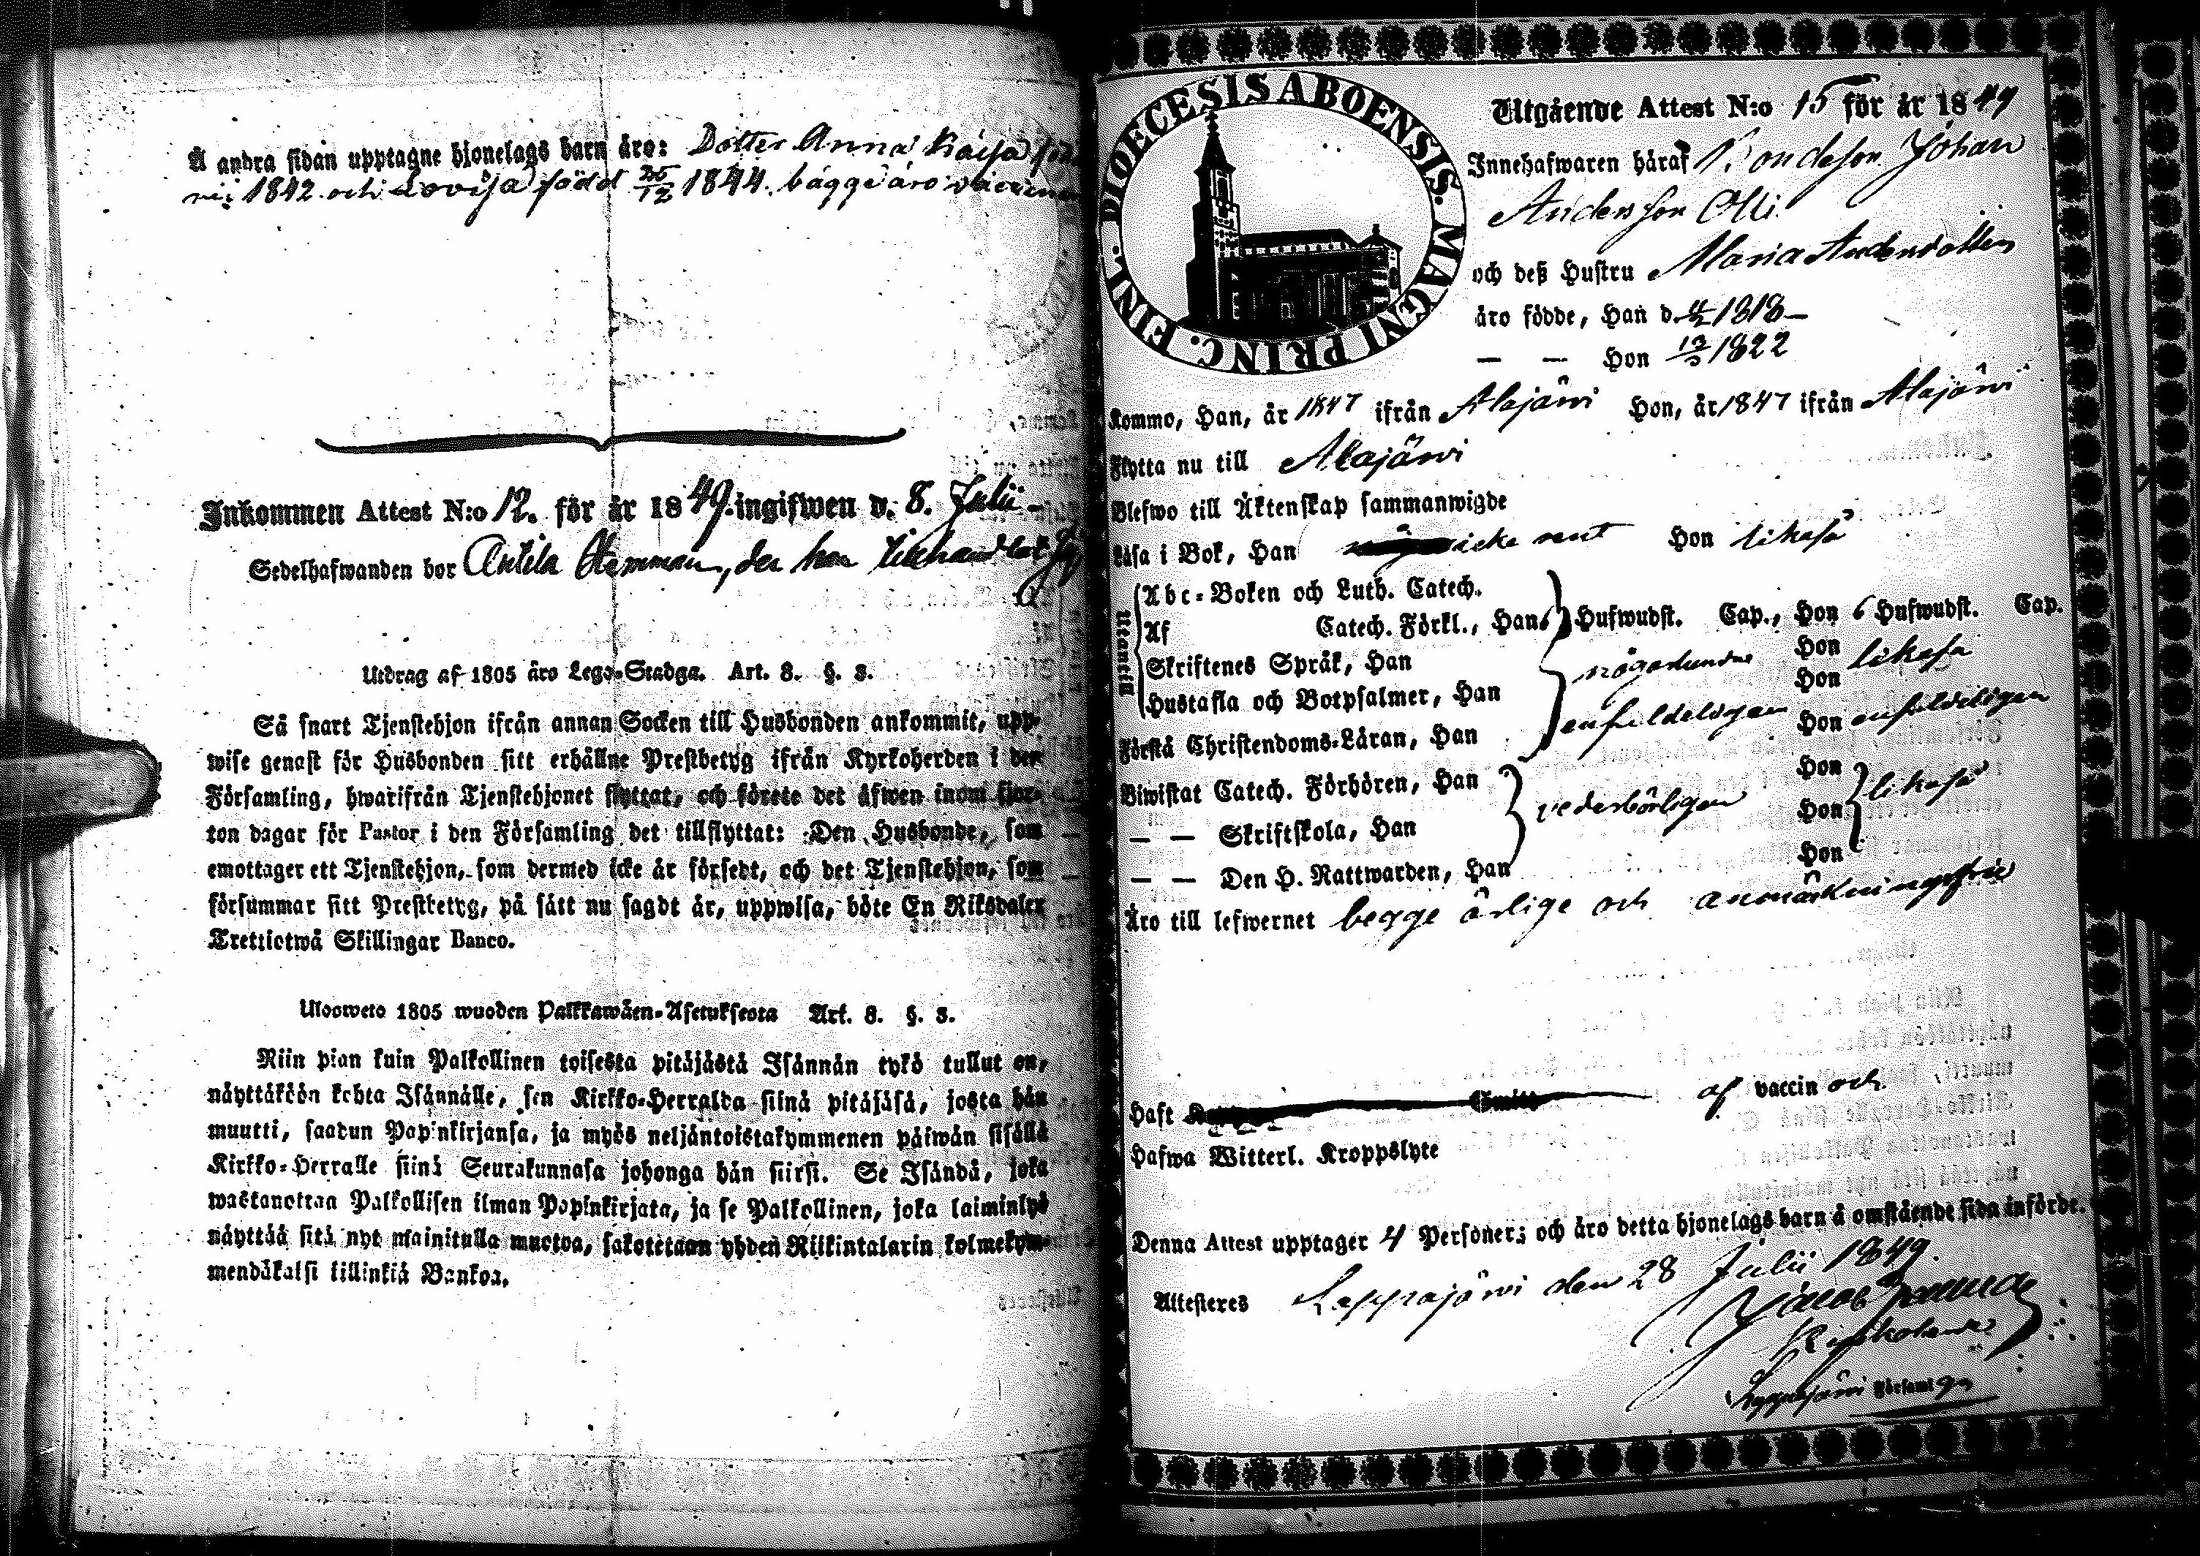 Å andra sidan upptagne hjonelags barn äro: Dotter Anna Kaisa
1842 och Lovisa född 25/12 1844. bägge äro
Inkommen Attest N:o 12. för år 1849. ingifwen d. 8. Julii
Sedelhafwanden bor Antila Hemman, der han
Utdrag af 1805 års Lego-Stadga. Art. 8. §. 3.
Så snart Tjenstehjon ifrån annan Socken till Husbonden ankommit, upp-
wise genast för Husbonden sitt erhållne Prestbetyg ifrån Kyrkoherden i den
Församling, hwarifrån Tjenstehjonet flyttat, och förete det äfwen inom fjor-
ton dagar för Pastor i den Församling det tillflyttat: Den Husbonde, som
emottager ett Tjenstehjon, som dermed icke är försedt, och det Tjenstehjon, som
försummar sitt Prestbetyg, på sätt nu sagdt är, uppwisa, böte En Riksdaler
Trettiotwå Skillingar Banco.
Ulosweto 1805 wuoden Palkkawäen-Asetuksesta Art. 8. §. 3.
Niin pian kuin Palkollinen toisesta pitäjästä Isännän tykö tullut on,
näyttäköön kohta Isännälle, sen Kirkko-Herralda siinä pitäjäsä, josta hän
muutti, saadun Papinkirjansa, ja myös neljäntoistakymmenen päiwän sisällä
Kirkko-Herralle siinä Seurakunnasa johonga hän siirsi. Se Isändä, joka
wastanottaa Palkollisen ilman Papinkirjata, ja se Palkollinen, joka laiminlyö
näyttää sitä nyt mainitulla muotoa, sakotetaan yhden Riikintalarin kolmekym-
mendäkaksi killinkiä Bankoa.
DIOECESIS ABOENSIS. MAGNI PRINC. FINL.
Utgående Attest N:o 15 för år 1849
Innehafwaren häraf Bondeson Johan
Andersson Olli
och deß Hustru Maria Andersdotter
äro födde, Han d. 1818
— — Hon 1822
Kommo, Han, år 1847 ifrån Alajärvi Hon, år 1847 ifrån Alajärvi
Flytta nu till Alajärvi
Blefwo till Äktenskap sammanwigde
Läsa i Bok, Han icke rent Hon likaså
Utantill
Abc-Boken och Luth. Catech.
Af Catech. Förkl., Han 6 Hufwudst. Cap., Hon 6 Hufwudst. Cap.
Skriftenes Språk, Han någorlunda Hon likaså
Hustafla och Botpsalmer, Han Hon
Förstå Christendoms-Läran, Han enfaldeligen Hon enfaldeligen
Biwistat Catech. Förhören, Han Hon
— — Skriftskola, Han vederbörligen Hon likaså
— — Den H. Nattwarden, Han Hon
Äro till lefwernet begge ärlige och anmärkningsfrie
Haft af vaccin och
Hafwa Witterl. Kroppslyte
Denna Attest upptager 4 Personer; och äro detta hjonelags barn å omstående sida införde.
Attesteres Lappajärvi den 28 Julii 1849.
Jacob
Lappajärvi Församlga